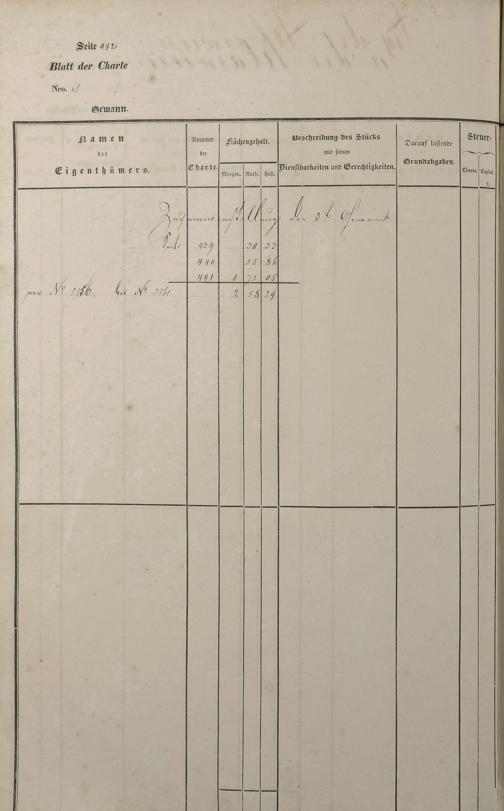 Seite 442
Blatt der Charte
Nro.
Gewann.
Namen des Eigenthümers.
Nummer der Charte
Flächengehalt.
Morgen. Ruth. Fuß.
Beschreibung des Stücks mit seinen Dienstbarkeiten und Gerechtigkeiten.
Darauf lastende Grundabgaben.
Steuer-
Classe. Capital.
Zusammenstellung der
Seite 439 30 33
440 55 86
441 1 72 05
No bis No 2 58 24